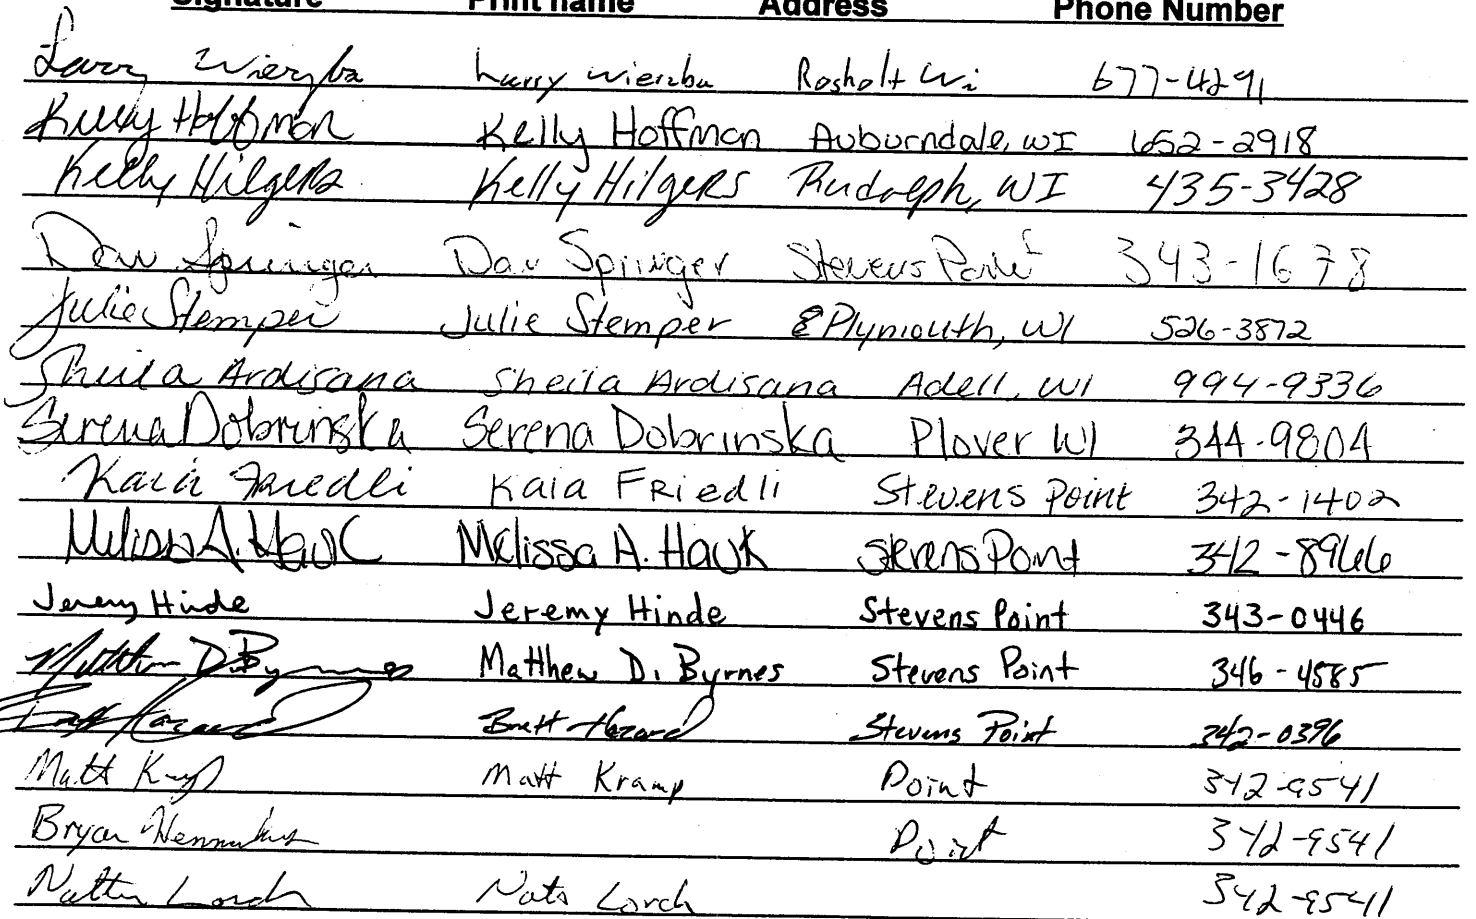 Signature Print name Address Phone Number
Larry Wierzba Larry Wierzba Rosholt Wi 677-4291
Kelly Hoffman Kelly Hoffman Auburndale, WI 652-2918
Kelly Hilgers Kelly Hilgers Rudolph, WI 435-3428
Dan Springer Dan Springer Stevens Point 343-1678
Julie Stemper Julie Stemper Plymouth, WI 526-3872
Sheila Ardisana Sheila Ardisana Adell, WI 994-9336
Serena Dobrinska Serena Dobrinska Plover WI 344-9804
Kaia Friedli Kaia Friedli Stevens Point 342-1402
Melissa A. Hauk Melissa A. Hauk Stevens Point 342-8966
Jeremy Hinde Jeremy Hinde Stevens Point 343-0446
Matthew D. Byrnes Matthew D. Byrnes Stevens Point 346-4585
Brett Hazard Brett Hazard Stevens Point 342-0396
Matt Matt Kramp Point 342-9541
Bryan Point 342-9541
Nathan Lorch Nate Lorch 342-9541